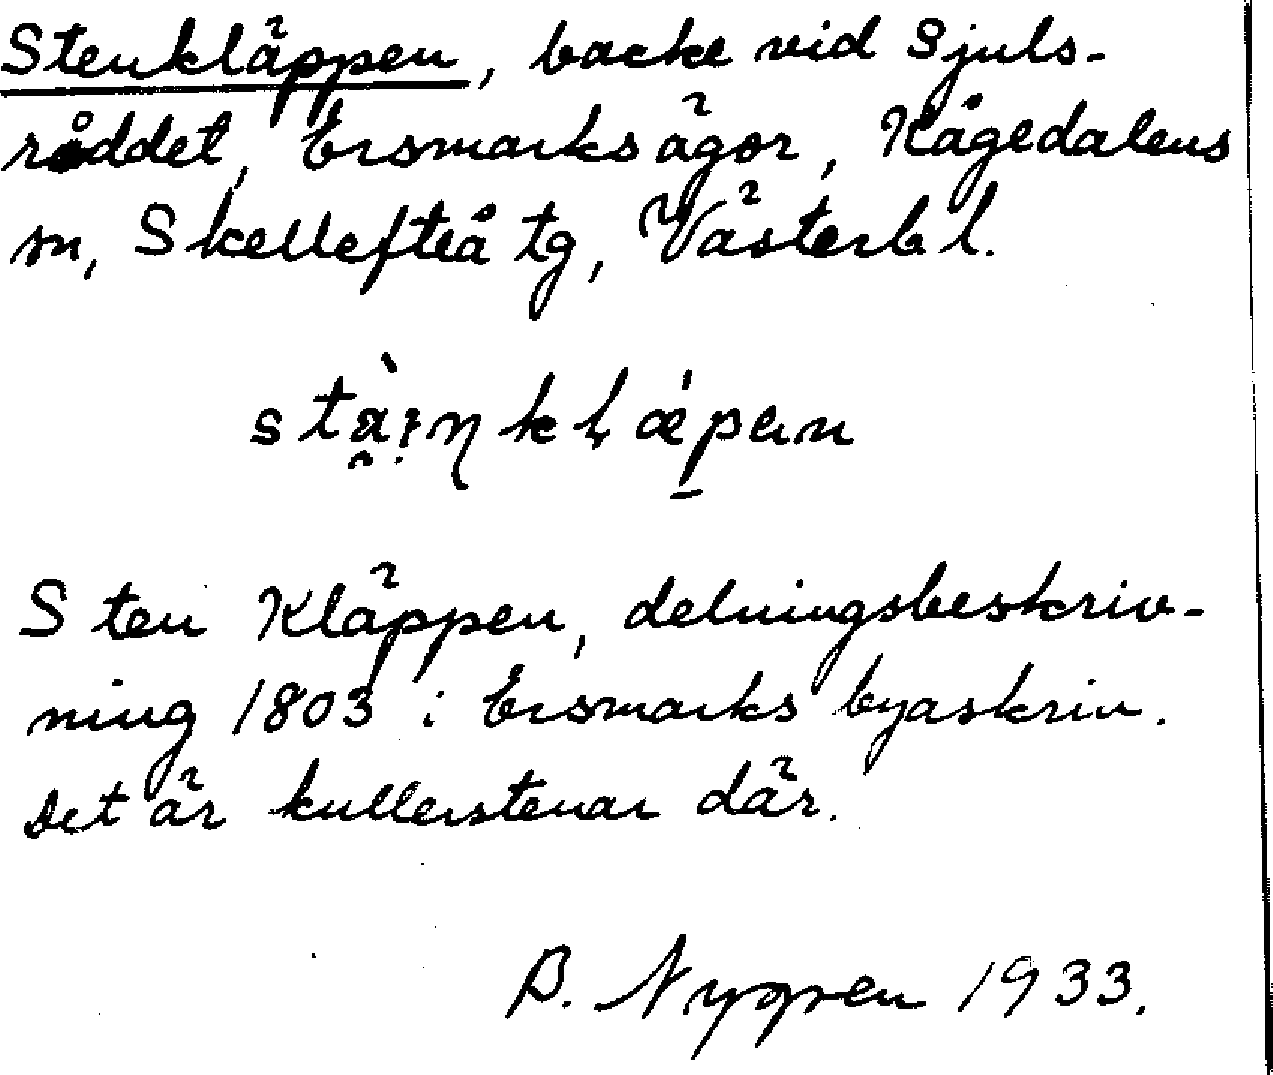 Stenkläppen, backe vid Sjuls-
råddet, Ersmarks ägor, Kågedalens
sn, Skellefteå tg, Västerb l.
Sten Kläppen, delningsbeskriv-
ning 1803 i Ersmarks byaskrin.
Det är kullerstenar där.
B. Nygren 1933.